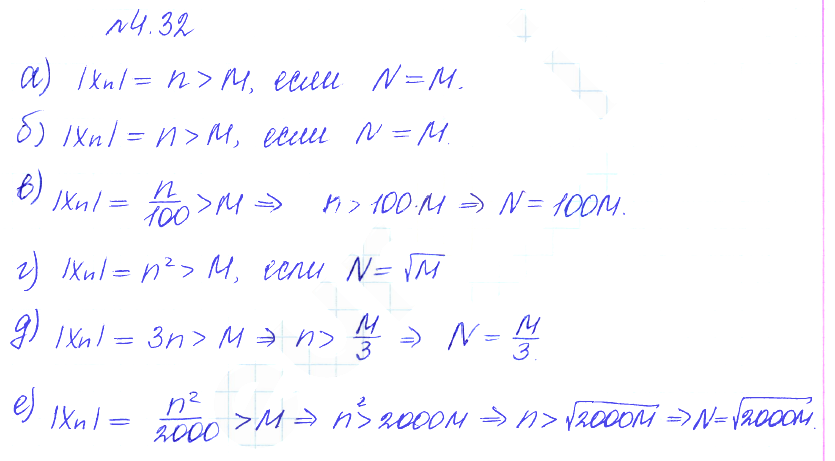 №4.32
а) |xₙ| = n > M, если N = M.
б) |xₙ| = n > M, если N = M.
в) |xₙ| = n/100 > M ⇒ n > 100·M ⇒ N = 100M.
г) |xₙ| = n² > M, если N = √M
д) |xₙ| = 3n > M ⇒ n > M/3 ⇒ N = M/3.
е) |xₙ| = n²/2000 > M ⇒ n² > 2000M ⇒ n > √(2000M) ⇒ N = √(2000M).